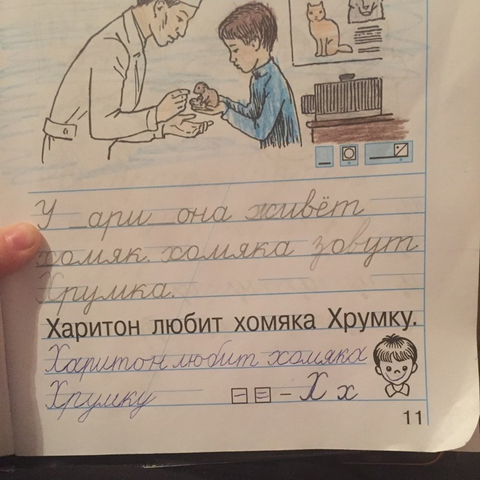 У _ари она живёт
хомяк. хомяка зовут
Хрумка.
Харитон любит хомяка Хрумку.
Харитон любит хомяка
Хрумку
– Х х
11